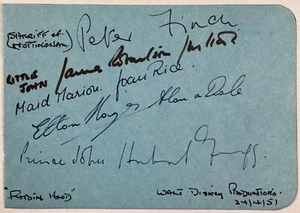 (SHERIFF OF NOTTINGHAM) Peter Finch
LITTLE JOHN James Robertson Justice
Maid Marion. Joan Rice.
Elton Hayes Alan a Dale
Prince John Hubert Gregg.
"ROBIN HOOD" WALT DISNEY PRODUCTIONS.
24/4/51